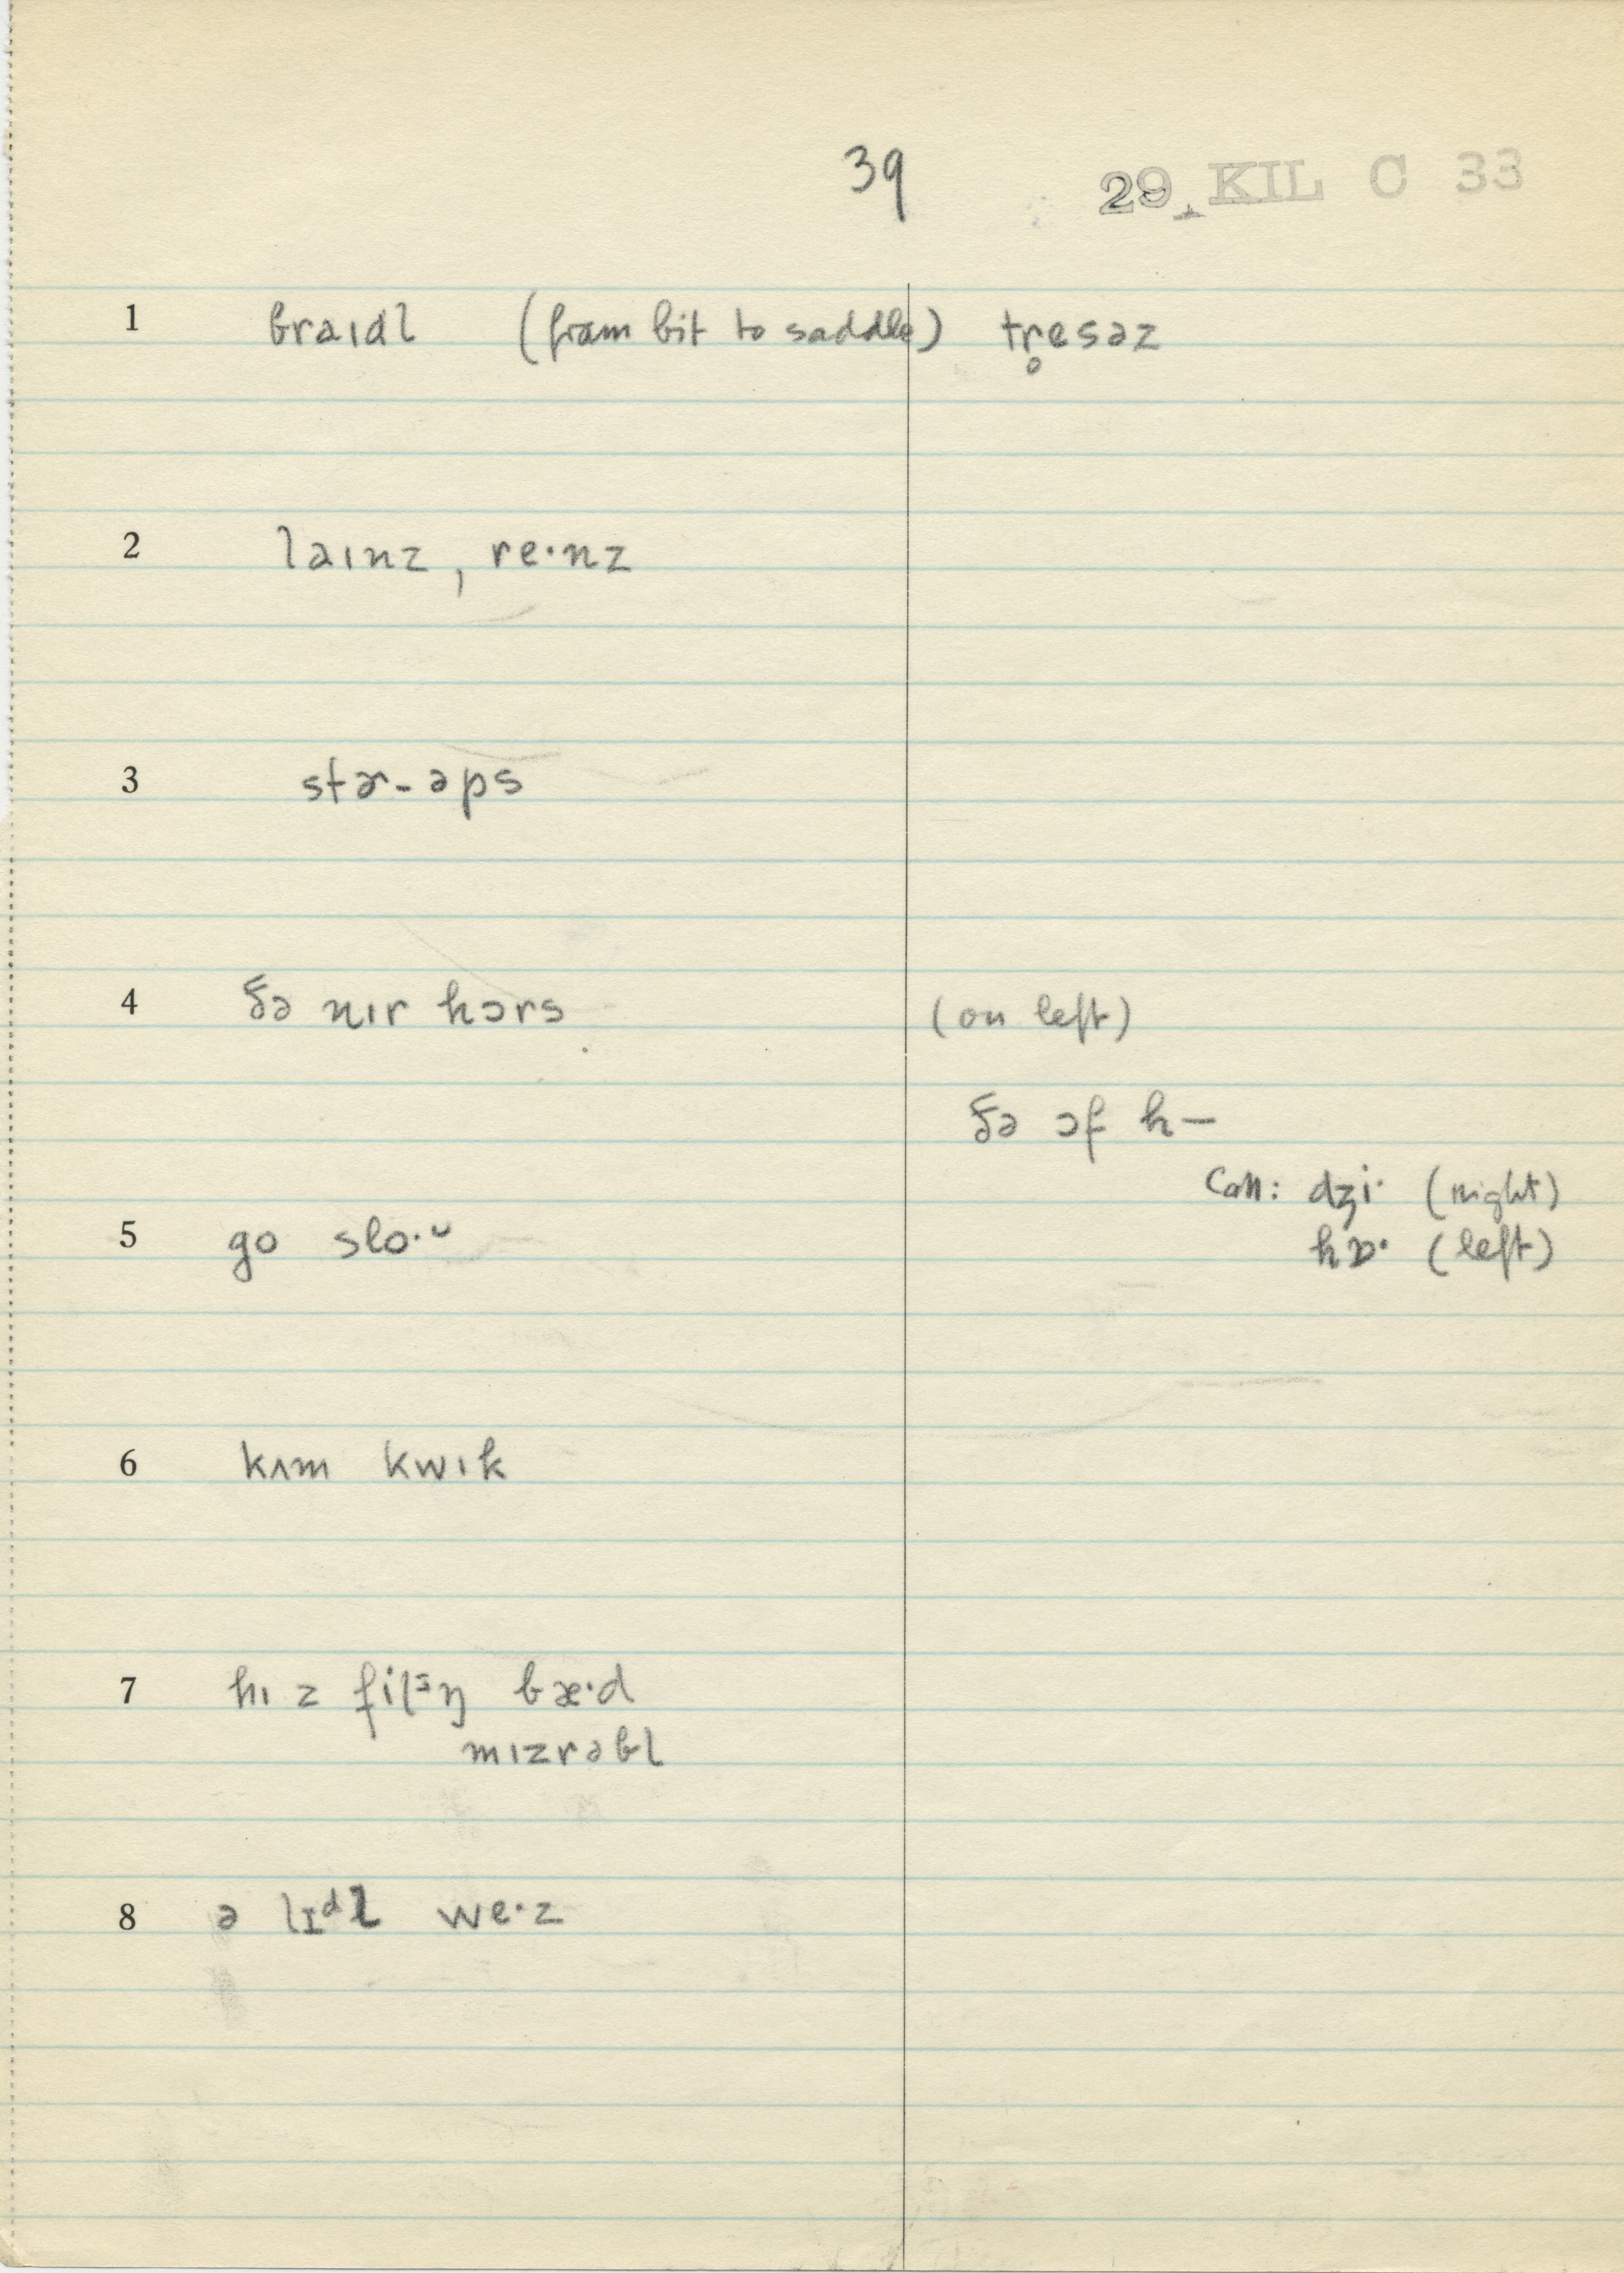 39 29 KIL C 33
1 braɪdl (from bit to saddle) tr̥esəz
2 laɪnz, re·nz
3 stɚ-əps
4 ðə nɪr hɔrs (on left)
ðə ɔf h—
Call: dʒi· (right)
hɒ· (left)
5 go slo·ᵕ
6 kʌm kwɪk
7 hɪ z filᵊŋ bæ·d
mɪzrəbl
8 ə lɪᵈl we·z